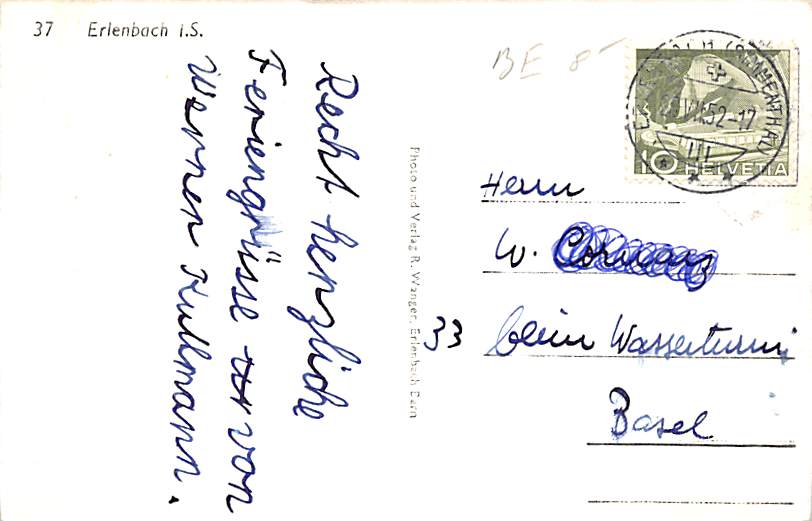 37 Erlenbach i.S.
Recht herzliche
Feriengrüsse von
Werner Kullmann.
Photo und Verlag R. Wanger, Erlenbach Bern
BE 8
(SIMMENTHAL)
52-17
10 HELVETIA
Herrn
W.
33 beim Wasserturm
Basel